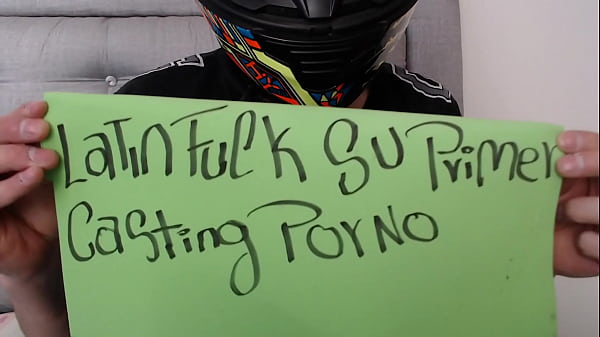 LaTin Fuck SU Primer
Casting PorNO